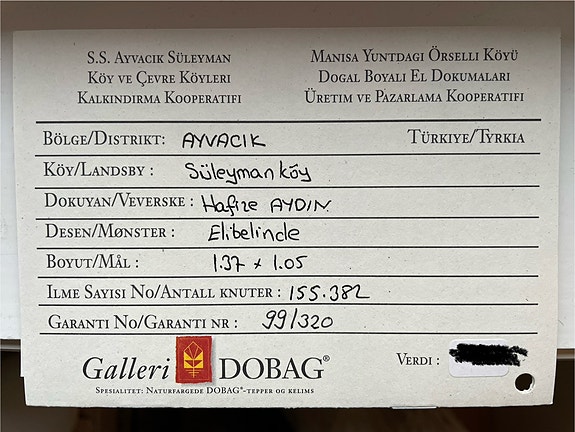 S.S. AYVACIK SÜLEYMAN
KÖY VE ÇEVRE KÖYLERI
KALKINDIRMA KOOPERATIFI
MANISA YUNTDAGI ÖRSELLI KÖYÜ
DOGAL BOYALI EL DOKUMALARI
ÜRETIM VE PAZARLAMA KOOPERATIFI
BÖLGE/DISTRIKT: AYVACIK TÜRKIYE/TYRKIA
KÖY/LANDSBY : Süleyman köy
DOKUYAN/VEVERSKE : Hafize AYDIN
DESEN/MØNSTER : Elibelinde
BOYUT/MÅL : 1.37 x 1.05
ILME SAYISI NO/ANTALL KNUTER : 155.382
GARANTI NO/GARANTI NR : 99/320
Galleri DOBAG®
VERDI :
SPESIALITET: NATURFARGEDE DOBAG®-TEPPER OG KELIMS